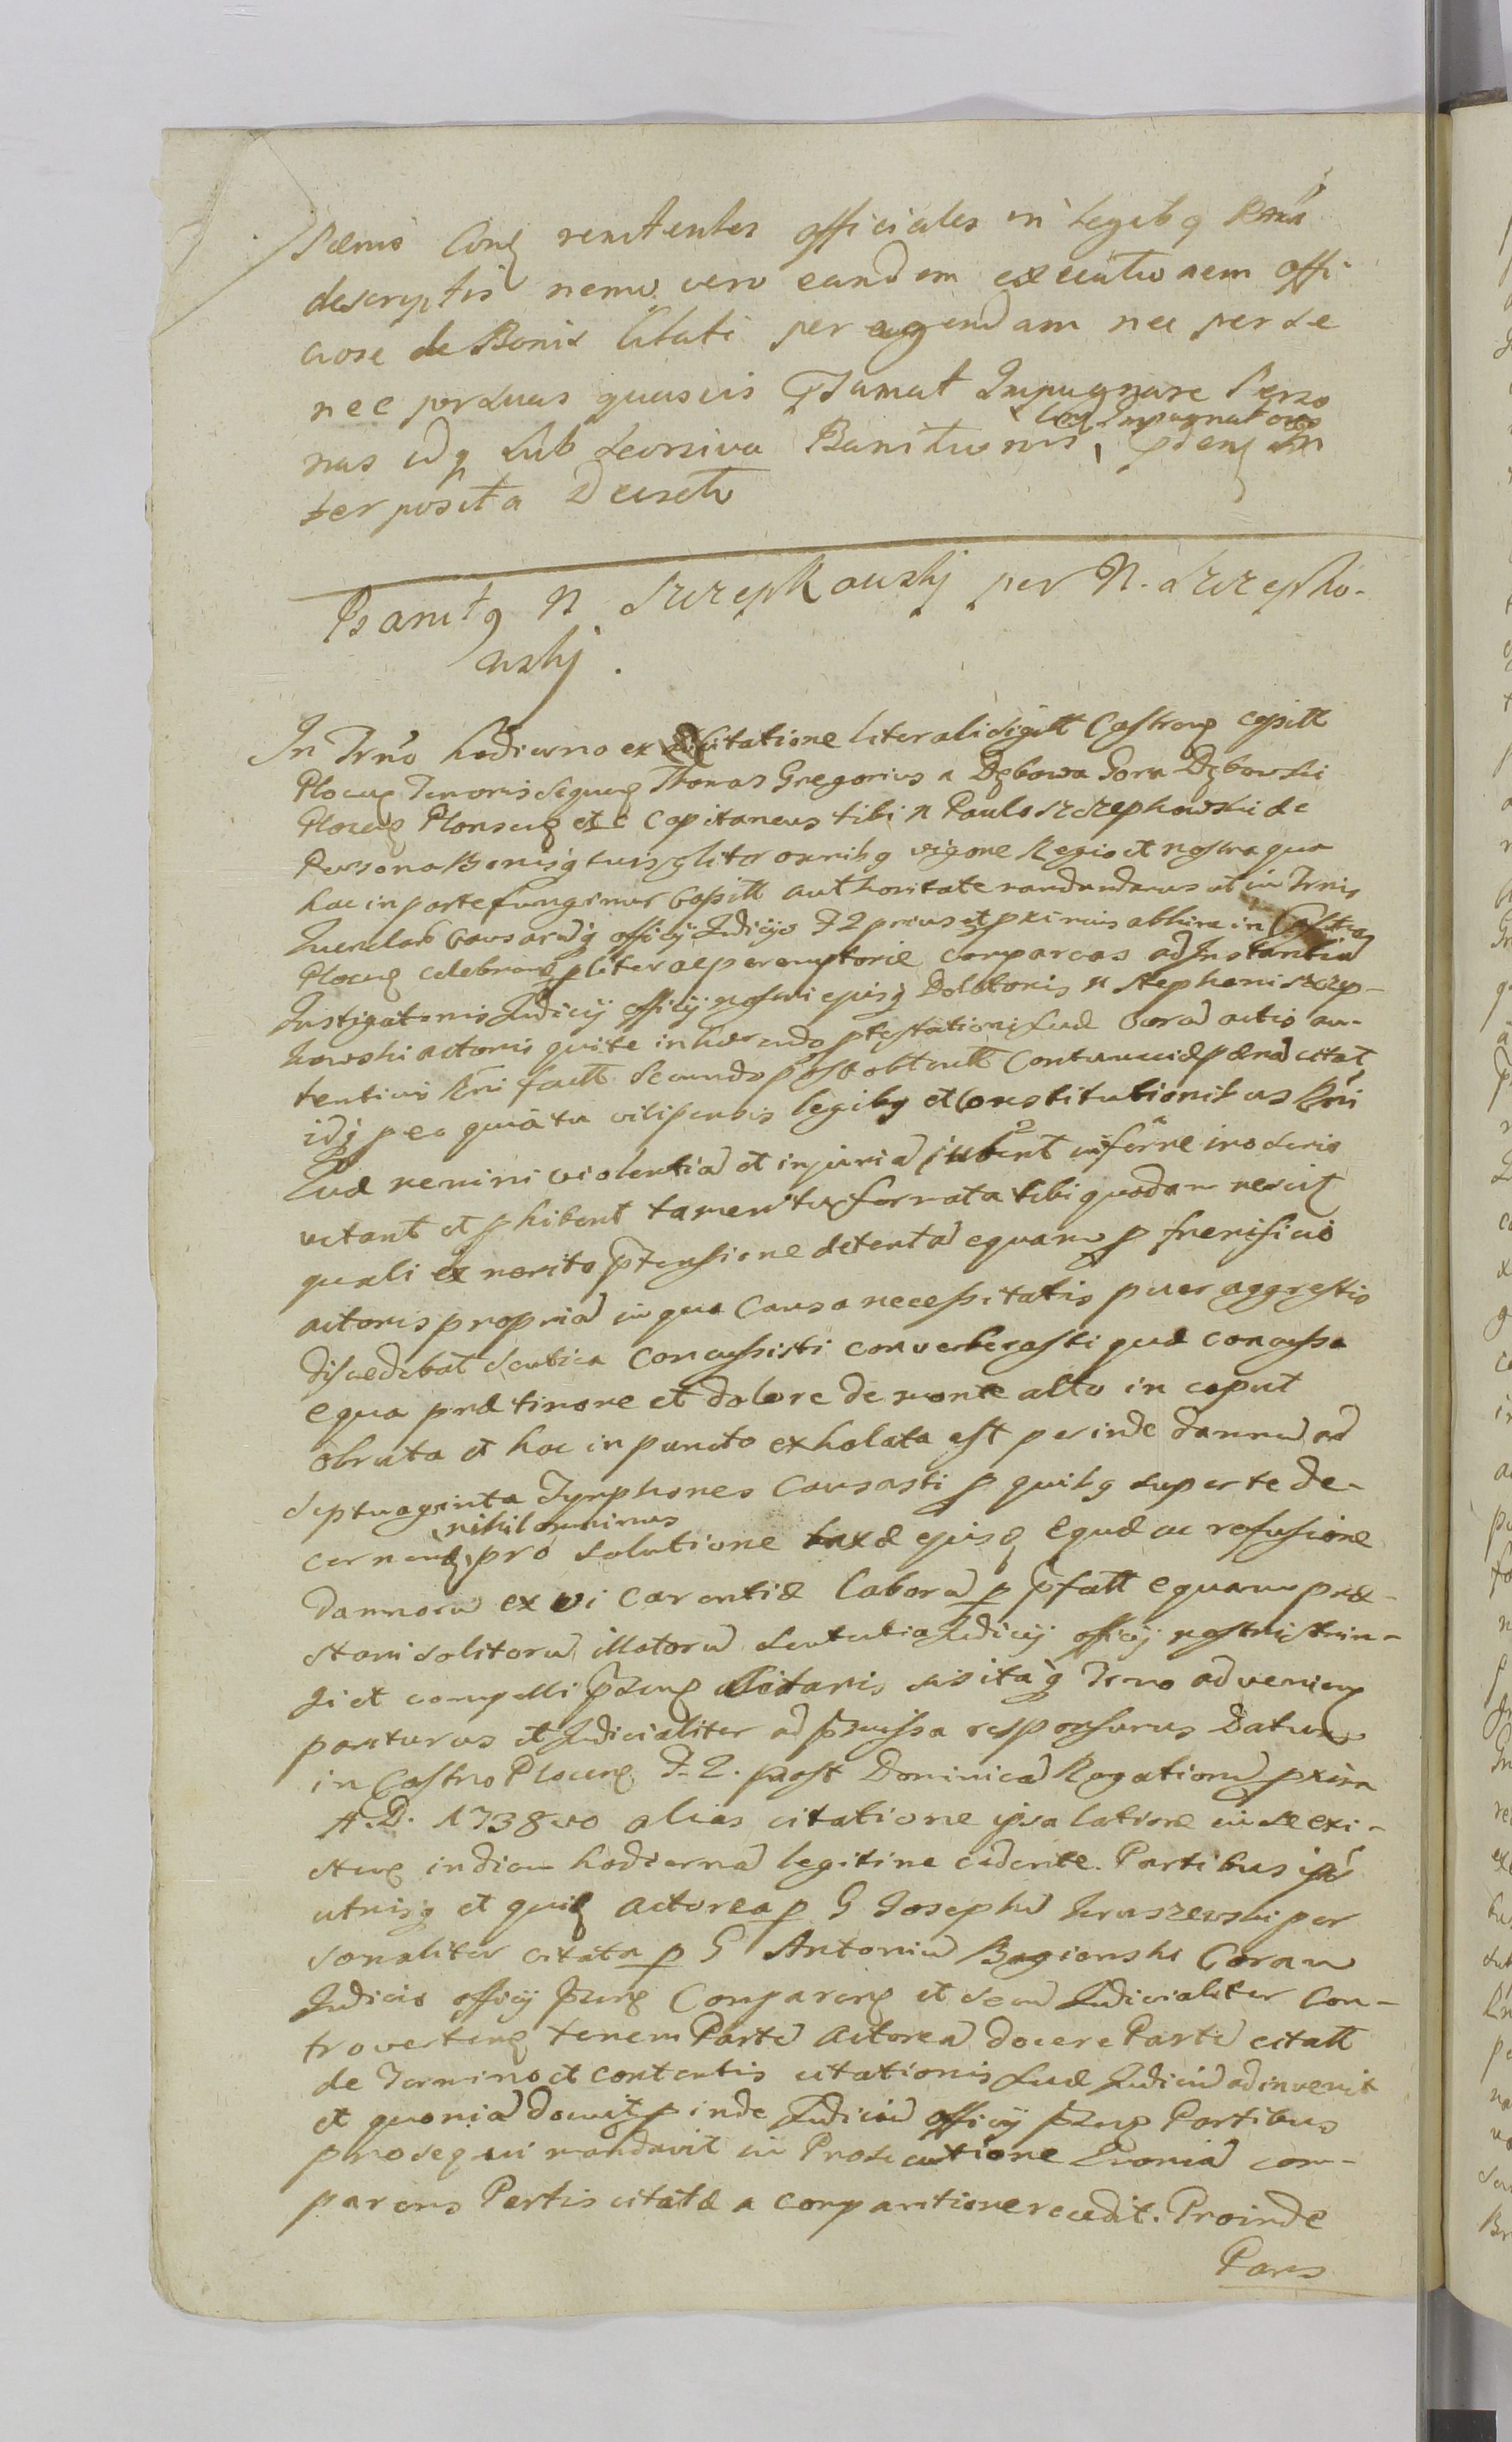 Pænis Conq renitentes officiales in Legibq Rni
descriptis nemo vero eandem executionem offi-
ciose de Bonis Citati per agendam nec per se
nec per suas quasvis Psumat Impugnare Perso
nas idq sub seorsiva Banitionis, Conq Impugnatores pdenq In
terposita Decreto
Banitq N Szczepkowskj per N. Szczepko-
wskj.
In Trno hodierno ex citatione literali sigill Castrenq capitl
Plocenq Tenoris sequenq Thomas Gregorius a Dębowa Gora Dębowski
Plocenq Plonscenq etc Capitaneus tibi N Paulo Szczepkowski de
Persona Bonisq tuis gliter omnibq vigore Regio et nostra qua
hac in parte fungimur Capitl authoritate mandamus ut in Trnis
Querelar Causaruq officij Judicijs F2 prius et pximis abhinc in Castro
Plocenq celebranq pliter ac peremptorie compareas ad Instantia
Instigatoris Judicij officij nostri ejusq Delatoris N Stephani Szczep-
kowski actoris qui te inhærendo ptestationi suæ Cora actis au-
tenticis Rni fact secundo post obtent Contumaciæ pæna citat
idq p eo quia tu vilipensis legibq et Constitutionibus Rni
quæ nemini violentia et injuria jubent inferre imo serio
vetant et phibent tamen tu formata tibi quadam nescitq
quali ex merito ptensione detenta equam p frenificio
actoris propria in qua Causa necessitatis puer aggressio
discedebat scutica concussisti converberasti quæ concussa
equa præ timore et dolore de monte alto in caput
obruta et hoc in puncto exhalata est perinde damnu ad
septuaginta Tymphones Causasti p quibq super te de-
cernenq, nihilominus pro solutione taxæ ejusq equæ ac refusione
damnoru ex vi carentiæ laboru p pfatt equam præ-
stari solitoru illatoru sententia Judicij officij nostri strin-
gi et compelli psenq Citaris sis itaq Trno advenienq
pariturus et Judicialiter ad pmissa responsurus Datum
in Castro Plocenq F. 2. post Dominica Rogationu pxima
A.D. 1738vo alias citatione ipsa latione in se exi-
stenq in diem hodierna legitime cadente. Partibus ipis
utrisq et quidq actorea p G Josephu Kruszewski per
sonaliter citata p G Antoniu Bogienski Coram
Judicio officij psenq Comparenq et secu Judicialiter Con-
trovertenq tenem Parte Actorea docere Parte citatt
de Termino et contentis citationis suæ Judiciu adinvenit
et quonia docuitq p inde Judiciu officij psenq Partibus
prosequi mandavit in Prosecutione Cronia com-
parens Partis citatæ a comparitione recedit. Proinde
Pars